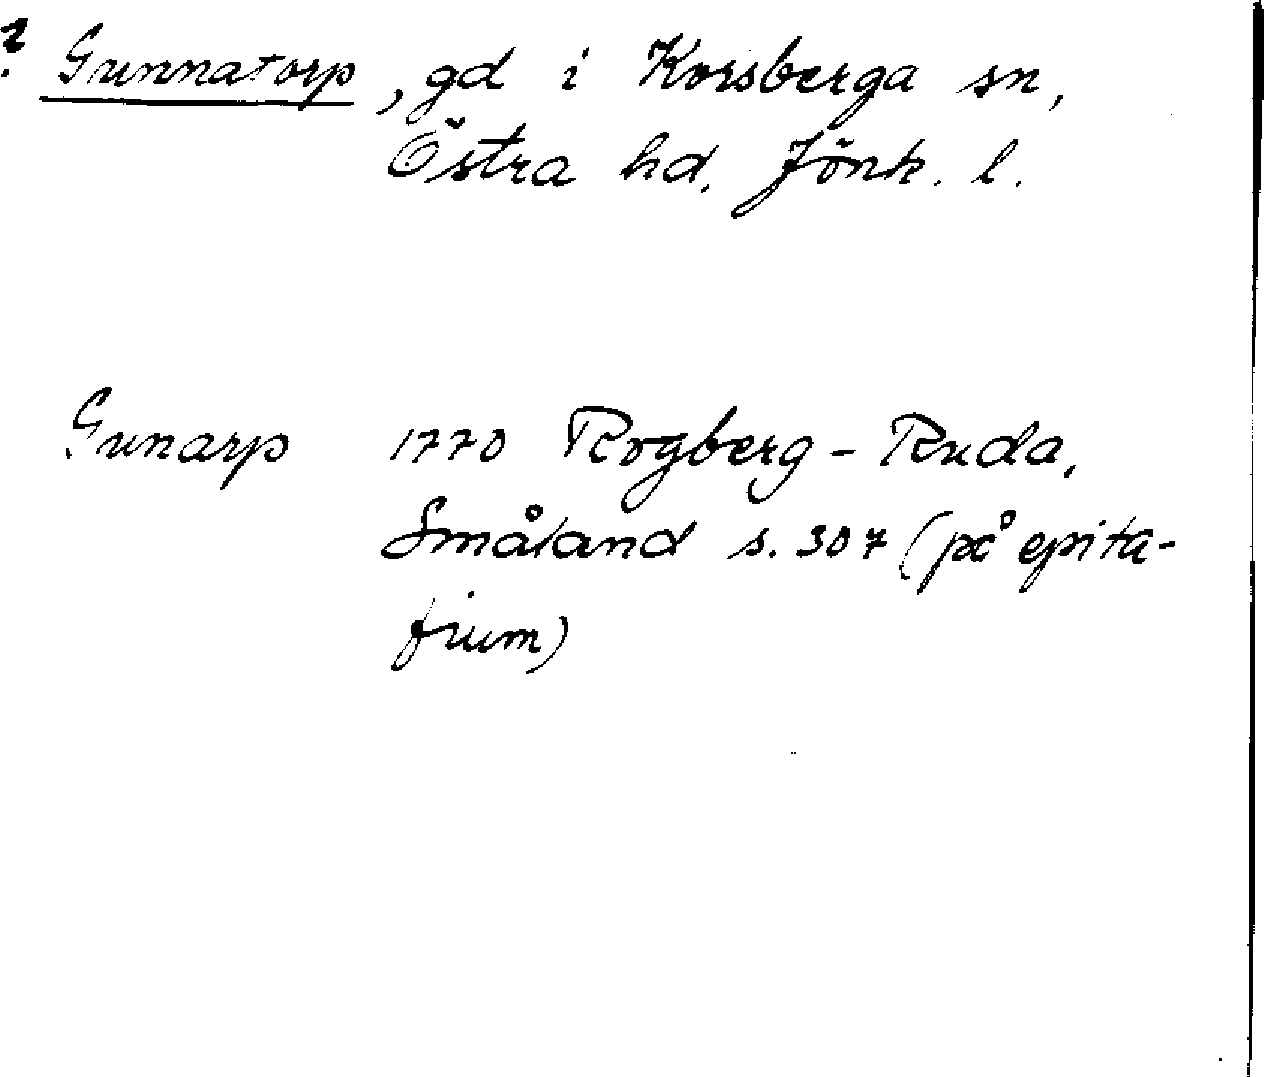 ? Gunnatorp, gd i Korsberga sn,
Östra hd. Jönk. l.
Gunarp 1770 Rogberg - Ruda,
Småland s. 307 (på epita-
fium)